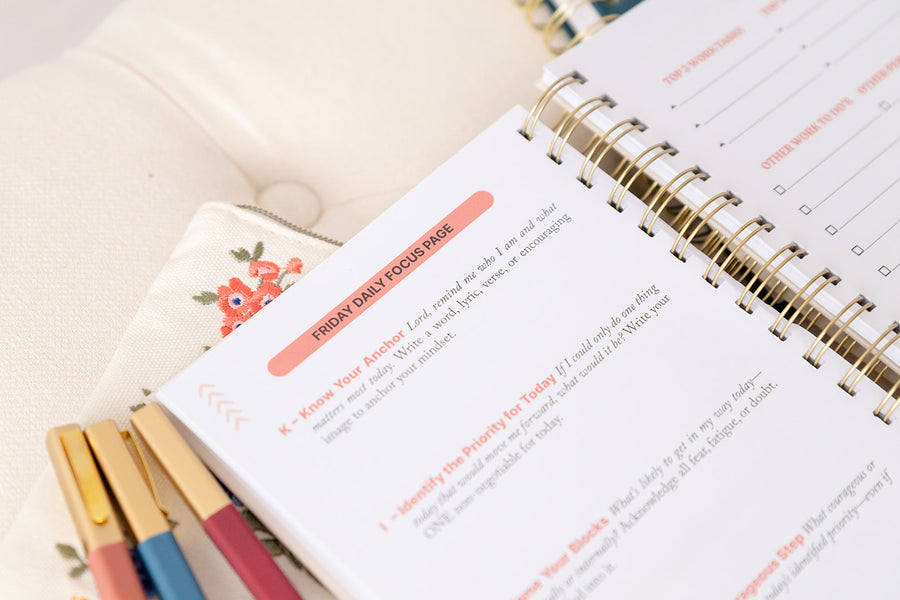 FRIDAY DAILY FOCUS PAGE
K – Know Your Anchor Lord, remind me who I am and what
matters most today. Write a word, lyric, verse, or encouraging
image to anchor your mindset.
I – Identify the Priority for Today If I could only do one thing
today that would move me forward, what would it be? Write your
ONE non-negotiable for today.
Your Blocks What's likely to get in my way today—
or internally? Acknowledge all fear, fatigue, or doubt.
into it.
Step What courageous or
today's identified priority—even if
TOP 3 WORK TASKS
TOP
OTHER WORK TO DO'S
OTHER